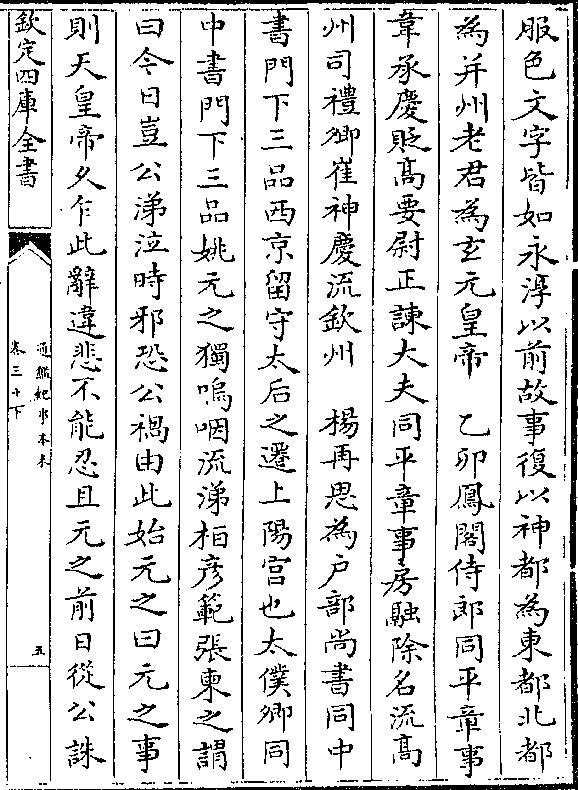 服色文字皆如永淳以前故事復以神都為東都北都
為并州老君為玄元皇帝　乙卯鳳閣侍郎同平章事
韋承慶貶高要尉正諫大夫同平章事房融除名流高
州司禮卿崔神慶流欽州　楊再思為户部尚書同中
書門下三品西京留守太后之遷上陽宫也太僕卿同
中書門下三品姚元之獨嗚咽流涕桓彦範張柬之謂
曰今日豈公涕泣時邪恐公禍由此始元之曰元之事
則天皇帝久乍此辭違悲不能忍且元之前日從公誅
欽定四庫全書
通鑑紀事本末
卷三十下
五